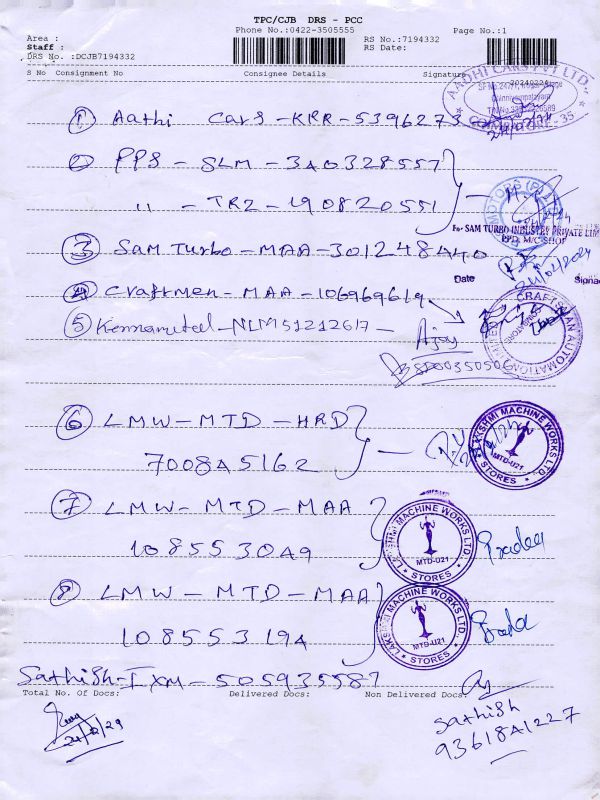 TPC/CJB DRS - PCC
Phone No.:0422-3505555
Area :
Staff :
DRS No. :DCJB7194332
RS No.:7194332
RS Date:
Page No.:1
S No Consignment No Consignee Details Signature
20240224
AADHI CARS PVT LTD
COIMBATORE - 35
① Aathi Cars - KRR - 5396273
② PPS - SLM - 340328557
" - TRZ - 190820551
MOTORS (P)
For SAM TURBO INDUSTRY PRIVATE LIM
PPD. M/C SHOP
③ Sam Turbo - MAA - 301248440
Date Signa
④ Craftmen - MAA - 106969619
CRAFTSMAN AUTOMATION LIMITED
⑤ Kennametal - NLM51212617 -
Ajoy
⑥ LMW - MTD - HRD
700845162
LAKSHMI MACHINE WORKS LTD.
MTD-U21
STORES
⑦ LMW - MTD - MAA
108553049
LAKSHMI MACHINE WORKS LTD.
MTD-U21
STORES
⑧ LMW - MTD - MAA
108553194
LAKSHMI MACHINE WORKS LTD.
MTD-U21
STORES
Sathish - IXM - 505935587
Total No. Of Docs: Delivered Docs: Non Delivered Docs:
Sathish
9361841227